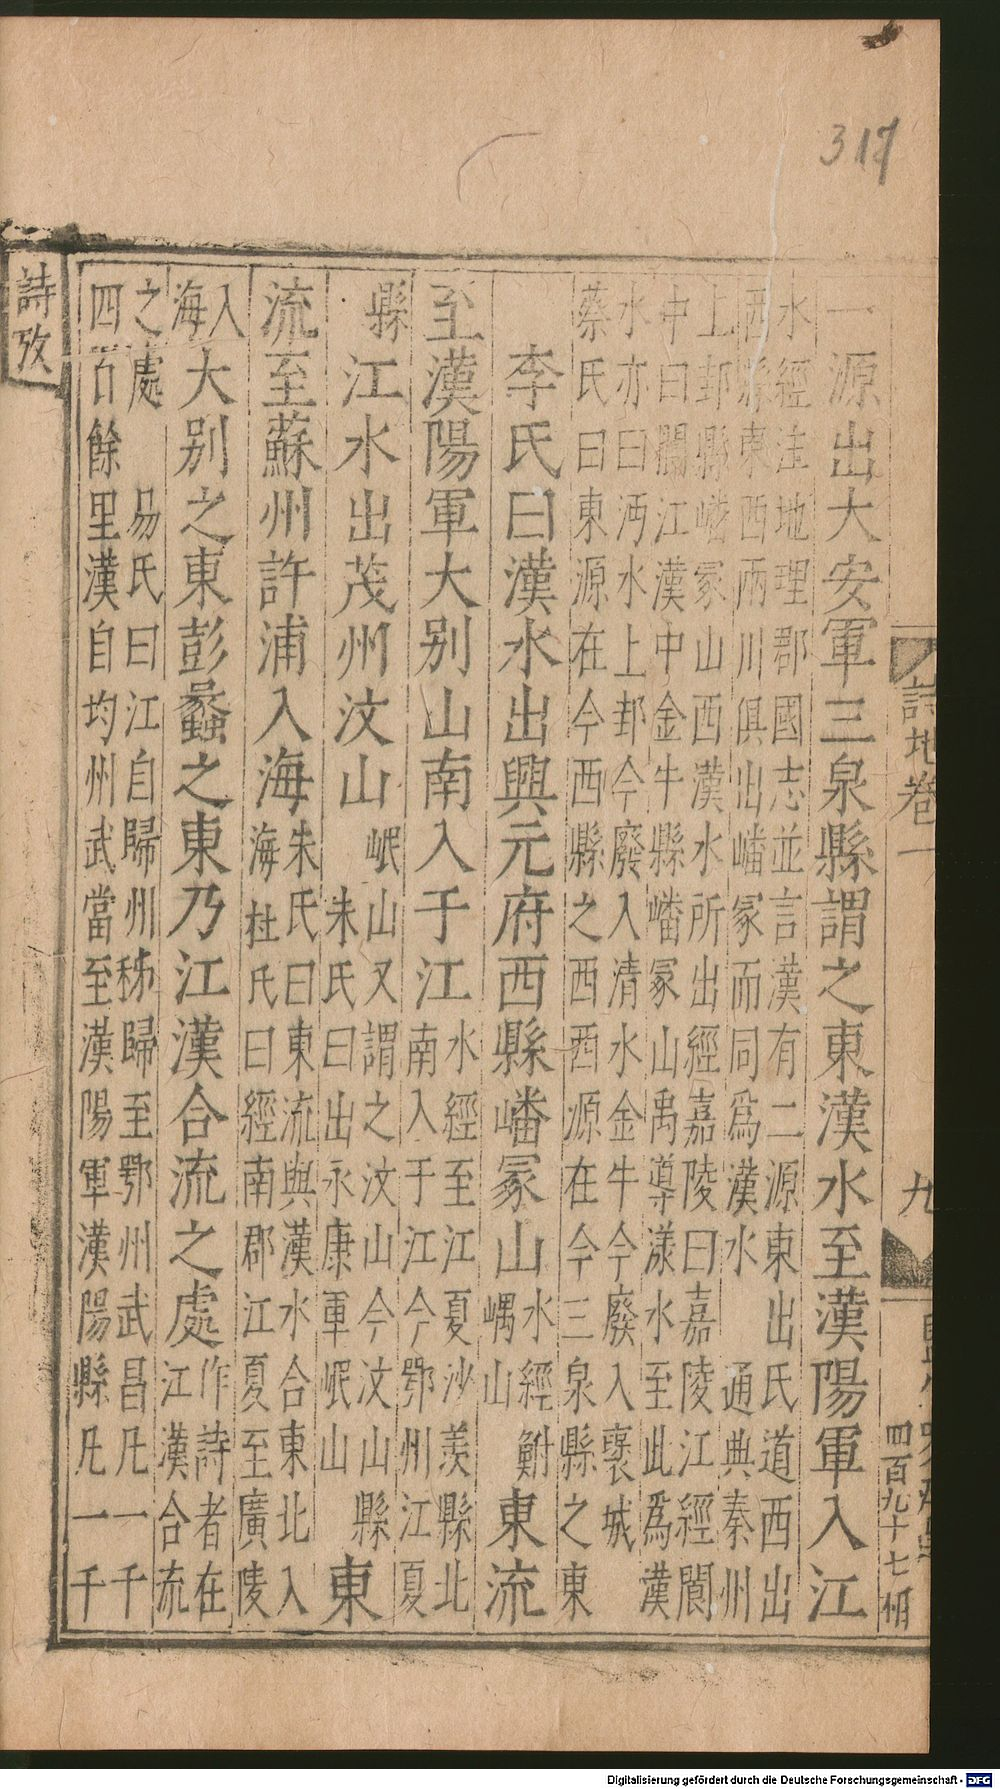 317
詩地卷一
九
四百九十七
一源出大安軍三泉縣謂之東漢水至漢陽軍入江
水經注地理郡國志並言漢有二源東出氐道西出
西縣東西兩川俱出嶓冢而同爲漢水 通典秦州
上邽縣嶓冢山西漢水所出經嘉陵曰嘉陵江經閬
中曰閬江漢中金牛縣嶓冢山禹導漾水至此爲漢
水亦曰沔水上邽今廢入清水金牛今廢入襃城
蔡氏曰東源在今西縣之西西源在今三泉縣之東
李氏曰漢水出興元府西縣嶓冢山
水經鮒
嵎山
東流
至漢陽軍大别山南入于江
水經至江夏沙羨縣北
南入于江今鄂州江夏
縣
江水出茂州汶山
岷山又謂之汶山今汶山縣
朱氏曰出永康軍岷山
東
流至蘇州許浦入海
朱氏曰東流與漢水合東北入
海杜氏曰經南郡江夏至廣陵
入
海
大别之東彭蠡之東乃江漢合流之處
作詩者在
江漢合流
之處 易氏曰江自歸州秭歸至鄂州武昌凡一千
四百餘里漢自均州武當至漢陽軍漢陽縣凡一千
詩攷
Digitalisierung gefördert durch die Deutsche Forschungsgemeinschaft - DFG